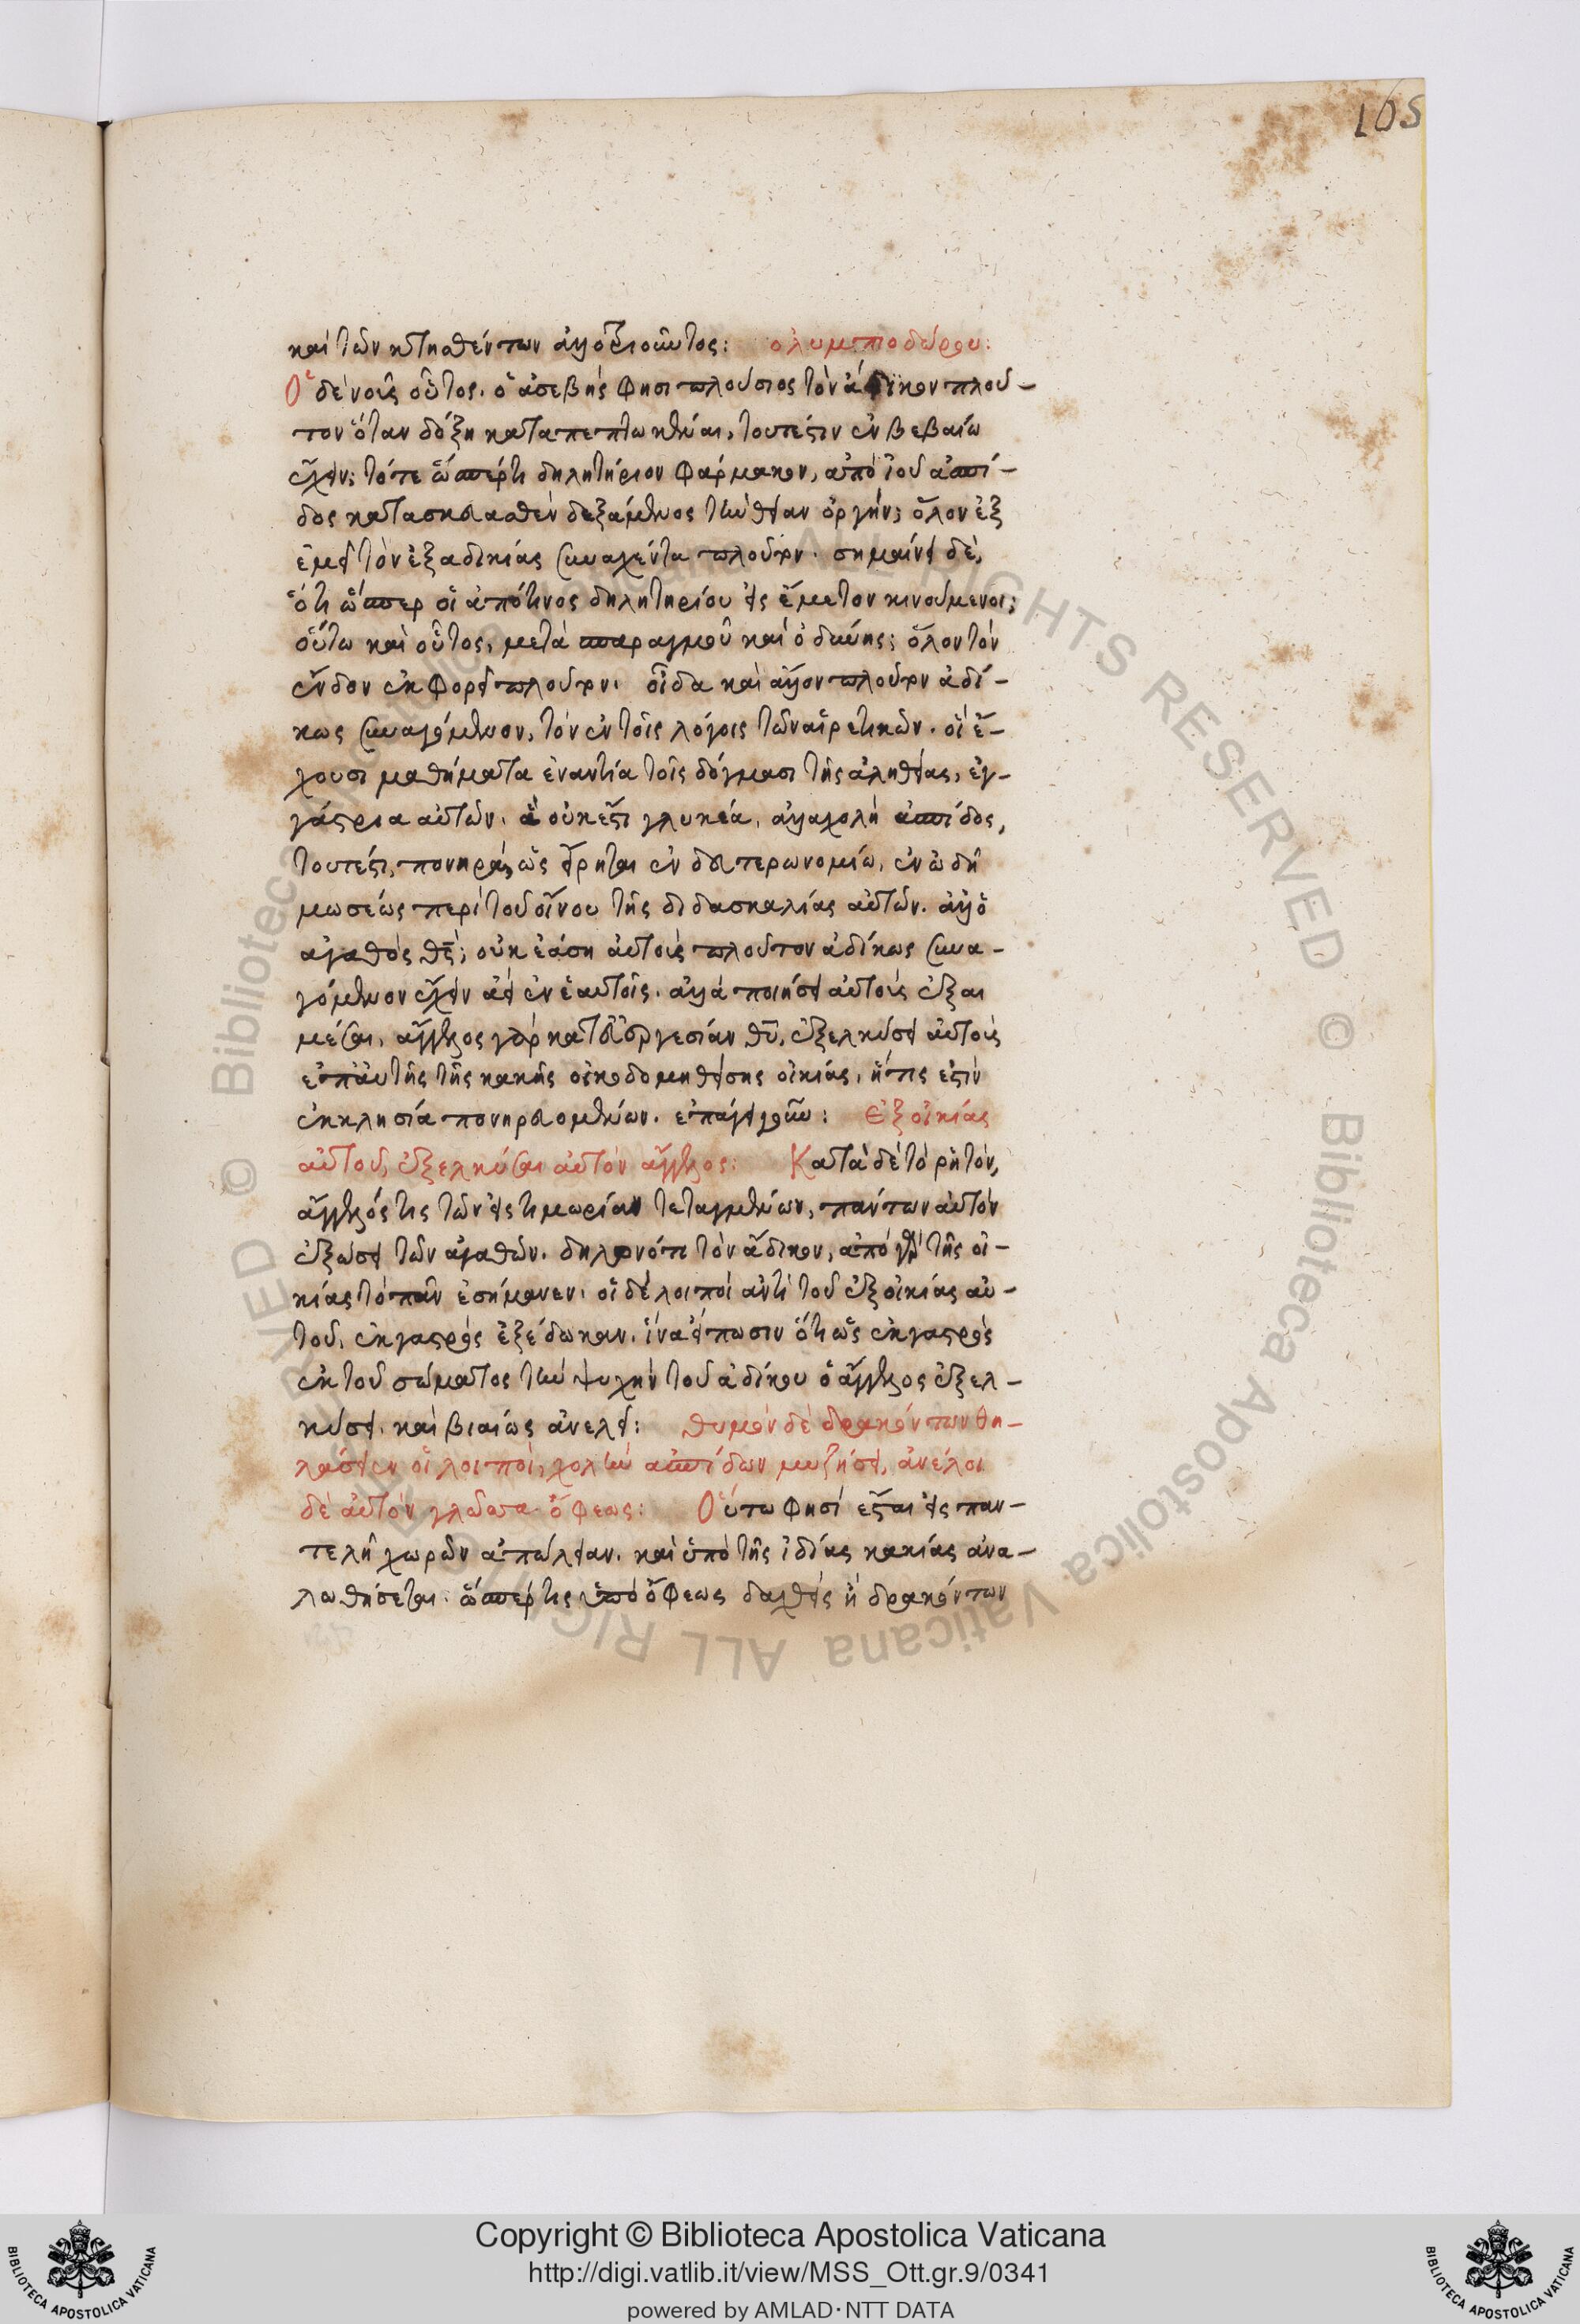 165
καὶ τῶν κτηθέντων ἀλλοτριοῦντος: ὀλυμπιοδώρου:
Ὁ δὲ νοῦς οὗτος. ὁ ἀσεβής φησι πλούσιος τὸν ἄδικον πλοῦ-
τον ὅταν δόξη καταπεπωκέναι, τουτέστιν ἐν βεβαίω
ἔχειν; τότε ὥσπερ τι δηλητήριον φάρμακον, ἀπὸ ἰοῦ ἀσπί-
δος κατασκευασθὲν δεξάμενος τὴν θείαν ὀργήν; ὅλον ἐξ
εμεῖ τὸν ἐξ ἀδικίας συναχέντα πλοῦτον. σημαίνει δὲ,
ὅτι ὥσπερ οἱ ἀπό τινος δηλητηρίου εἰς ἔμετον κινούμενοι;
οὕτω καὶ οὗτος, μετὰ σπαραγμοῦ καὶ ὀδύνης; ὅλον τὸν
ἔνδον ἐκφορεῖ πλοῦτον. οἶδα καὶ ἄλλον πλοῦτον ἀδί-
κως συναγόμενον, τὸν ἐν τοῖς λόγοις τῶν αἱρετικῶν. οἳ ἔ-
χουσι μαθήματα ἐναντία τοῖς δόγμασι τῆς ἀληθείας, ἐγ-
γάστρια αὐτῶν. ἃ οὐκ ἔστι γλυκέα, ἀλλὰ χολὴ ἀσπίδος,
τουτέστι, πονηρὰ, ὡς εἴρηται ἐν δευτερωνομίω, ἐν ὠδῆ
μωσέως περὶ τοῦ οἴνου τῆς διδασκαλίας αὐτῶν. ἀλλ' ὁ
ἀγαθὸς θς; οὐκ ἐάση αὐτοὺς πλοῦτον ἀδίκως συνα-
γόμενον ἔχειν ἀεὶ ἐν ἑαυτοῖς. ἀλλὰ ποιήσει αὐτοὺς ἐξαι
μέσαι, ἄγγελος γὰρ κατ' εὐεργεσίαν θυ, ἐξελκύσει αὐτοὺς
ἐπ' αὐτῆς τῆς κακῆς οἰκοδομηθείσης οἰκίας, ἥτις ἐστὶν
ἐκκλησία πονηρευομένων. ἐπάγει γοῦν: Ἐξ οἰκίας
αὐτοῦ, ἐξελκύσαι αὐτὸν ἄγγελος: Κατὰ δὲ τὸ ρητὸν,
ἄγγελός τις τῶν εἰς τιμωρίαν τεταγμένων, πάντων αὐτὸν
ἐξώσει τῶν ἀγαθῶν. δηλονότι τὸν ἄδικον, ἀπὸ γὰρ τῆς οἰ-
κίας τὸ πᾶν ἐσήμανεν. οἱ δὲ λοιποὶ ἀντὶ τοῦ ἐξ οἰκίας αὐ-
τοῦ, ἐκ γαστρὸς ἐξέδωκαν. ἵνα εἴπωσιν ὅτι ὡς ἐκ γαστρὸς
ἐκ τοῦ σώματος τὴν ψυχὴν τοῦ ἀδίκου ὁ ἄγγελος ἐξελ-
κύσει. καὶ βιαίως ἀνελεῖ: θυμὸν δὲ δρακόντων θη-
λάσειεν οἱ λοιποὶ, χολὴν ἀσπίδων μυζήσει, ἀνέλοι
δὲ αὐτὸν γλῶσσα ὄφεως: Οὕτω φησὶ ἔσται εἰς παν-
τελῆ χωρῶν ἀπώλειαν. καὶ ὑπὸ τῆς ἰδίας κακίας ἀνα-
λωθήσεται. ὥσπερ τις ὑπὸ ὄφεως δηχθεὶς ἢ δρακόντων
Copyright © Biblioteca Apostolica Vaticana
http://digi.vatlib.it/view/MSS_Ott.gr.9/0341
powered by AMLAD·NTT DATA